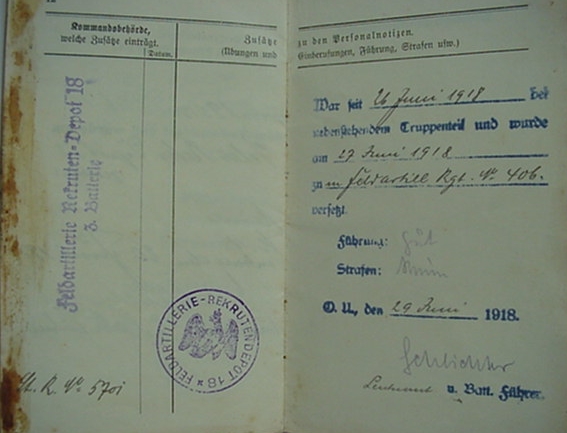 Kommandobehörde,
welche Zusätze einträgt.
Datum.
Zusätze
(Übungen und
Feldartillerie Rekruten-Depot 18
3. Batterie
FELDARTILLERIE-REKRUTENDEPOT 18 *
St. R. No 5701
zu den Personalnotizen.
Einberufungen, Führung, Strafen usw.)
War seit 26 Juni 1918 bei
nebenstehendem Truppenteil und wurde
am 27 Juni 1918
zu Feldartill Rgt. No 406.
versetzt.
Führung: Gut
Strafen:
O. U., den 29 Juni 1918.
Leutnant u. Batt. Führer.